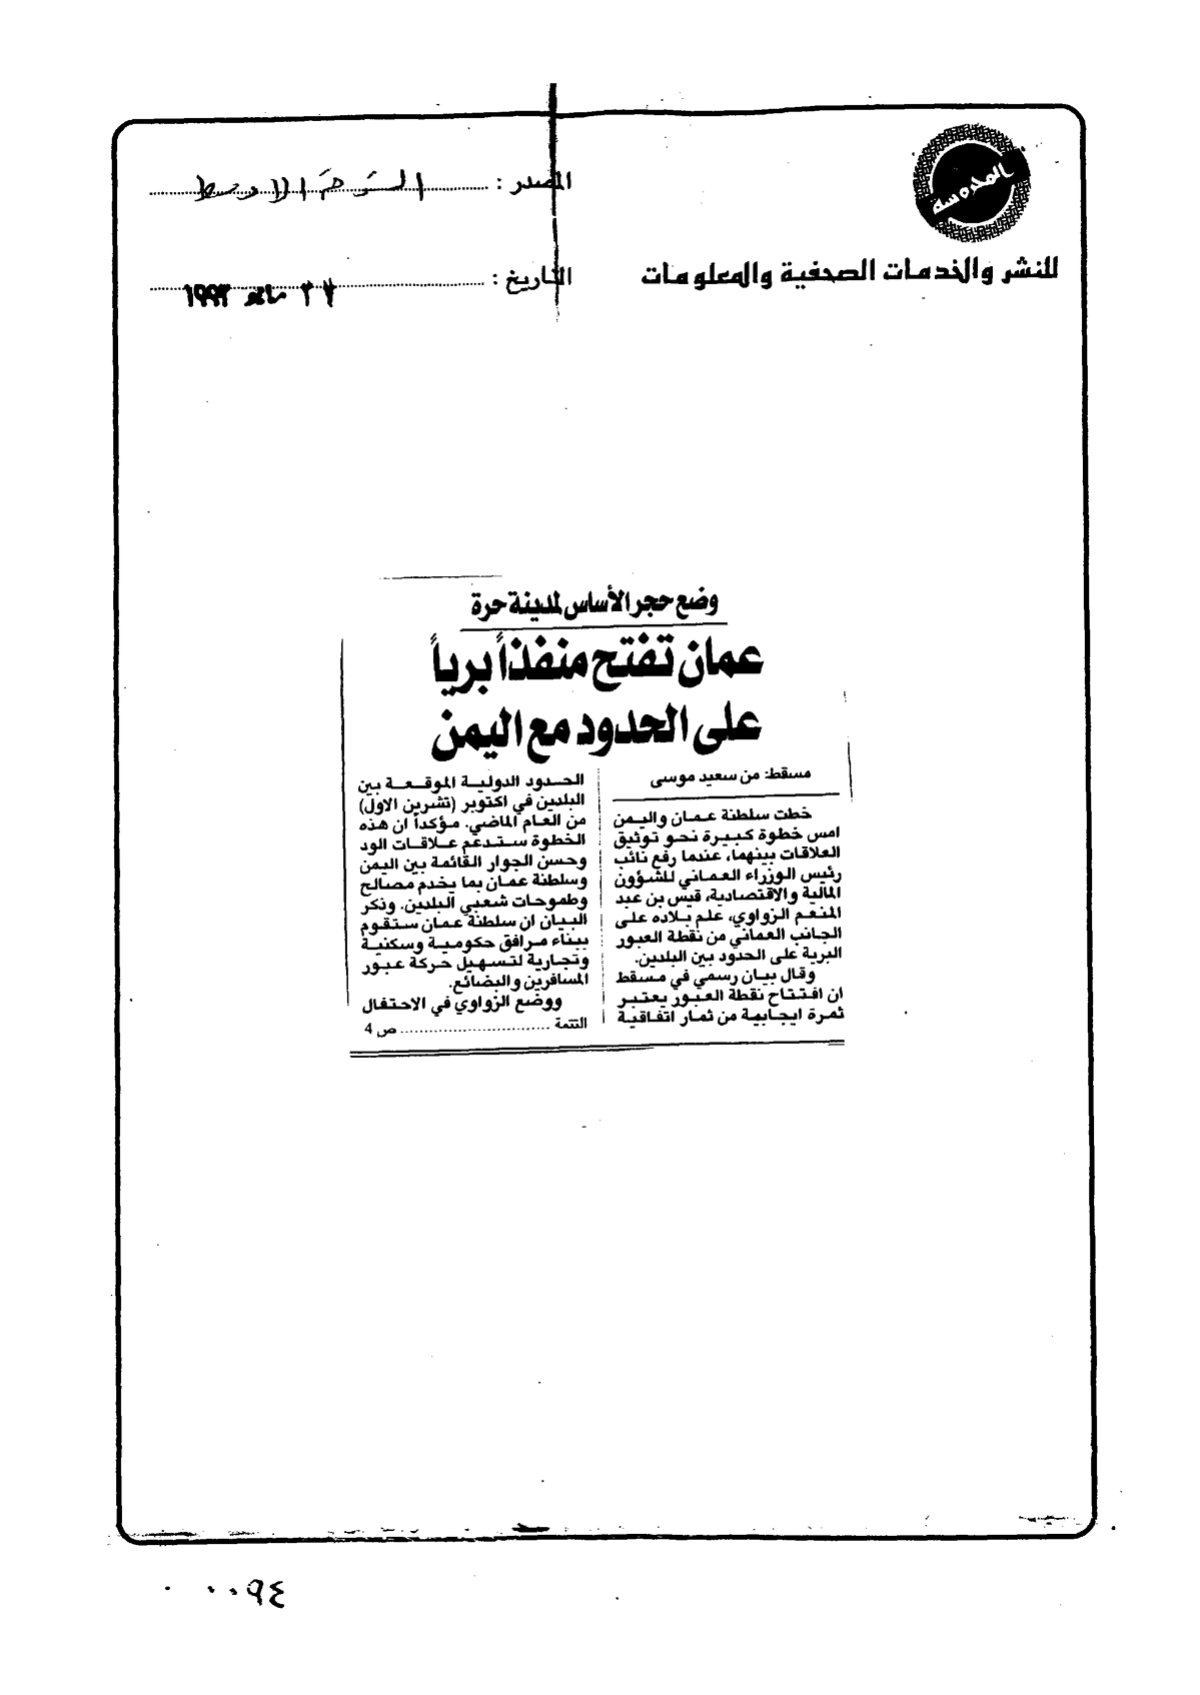 المدوسة
للنشر والخدمات الصحفية والمعلومات
المصدر : الشرق الاوسط
التاريخ : مايو ١٩٩٣
وضع حجر الأساس لمدينة حرة
عمان تفتح منفذاً برياً
على الحدود مع اليمن
مسقط: من سعيد موسى
خطت سلطنة عمان واليمن
امس خطوة كبيرة نحو توثيق
العلاقات بينهما، عندما رفع نائب
رئيس الوزراء العماني للشؤون
المالية والاقتصادية، قيس بن عبد
المنعم الزواوي، علم بلاده على
الجانب العماني من نقطة العبور
البرية على الحدود بين البلدين.
وقال بيان رسمي في مسقط
ان افتتاح نقطة العبور يعتبر
ثمرة ايجابية من ثمار اتفاقية
الحدود الدولية الموقعة بين
البلدين في اكتوبر (تشرين الاول)
من العام الماضي. مؤكداً ان هذه
الخطوة ستدعم علاقات الود
وحسن الجوار القائمة بين اليمن
وسلطنة عمان بما يخدم مصالح
وطموحات شعبي البلدين. وذكر
البيان ان سلطنة عمان ستقوم
ببناء مرافق حكومية وسكنية
وتجارية لتسهيل حركة عبور
المسافرين والبضائع.
ووضع الزواوي في الاحتفال
التتمة ............................ ص 4
٠٠٩٤